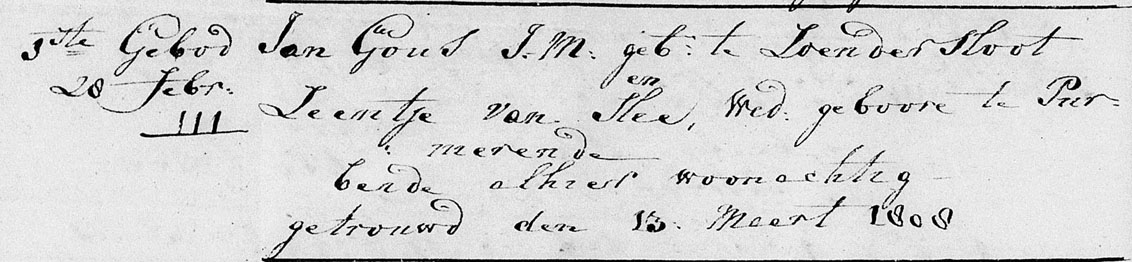 1ste Gebod Jan Gous J.M. geb. te Loendersloot
28 Febr. en
III Leentje van Slee, Wed. geboore te Pur-
merende
beide alhier woonachtig
getrouwd den 13. Meert 1808